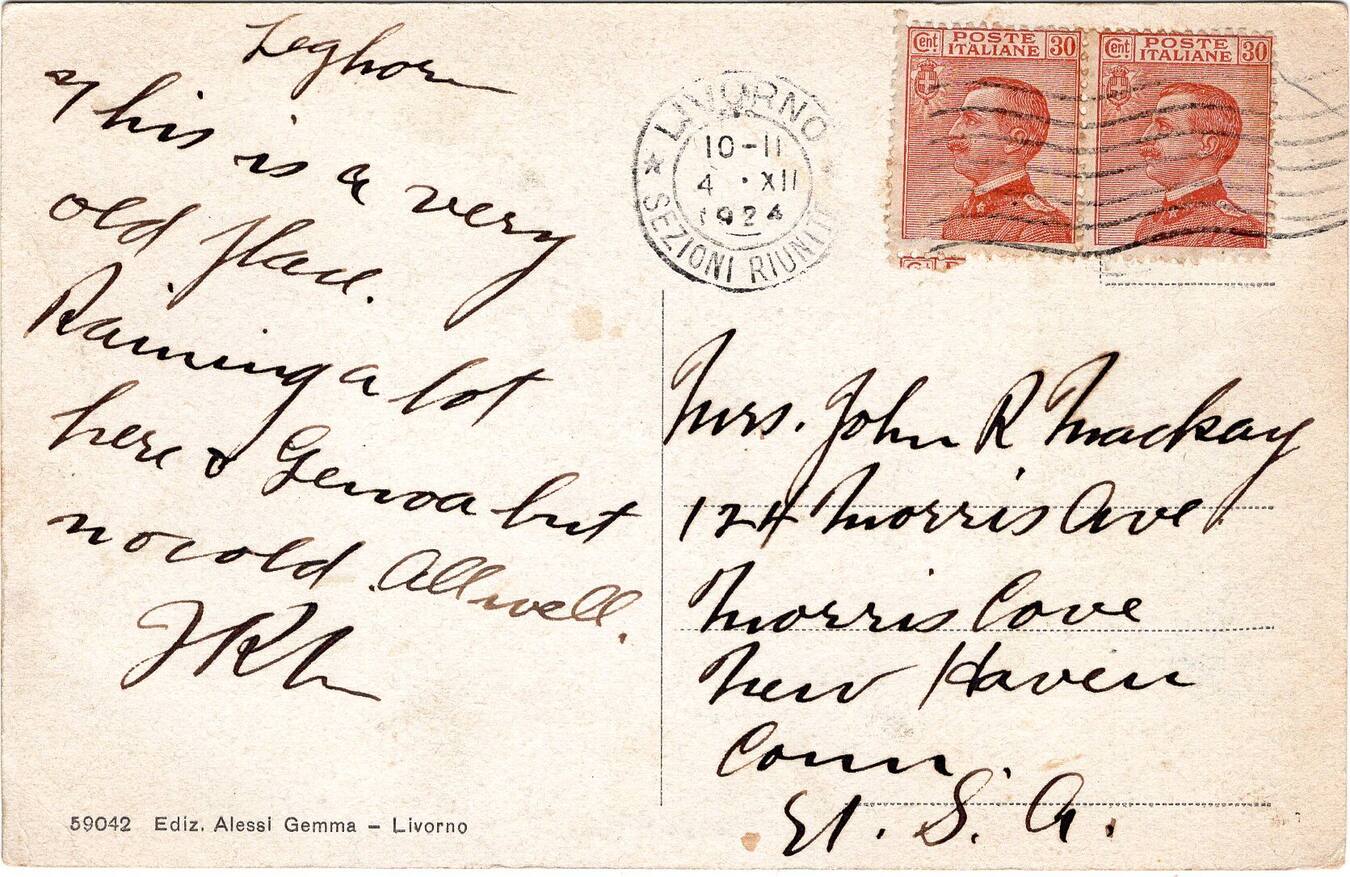 Leghorn
This is a very
old place.
Raining a lot
here & Genoa but
no cold. All well.
59042 Ediz. Alessi Gemma – Livorno
LIVORNO
10-11
4 · XII
1924
SEZIONI RIUNITE
Cent. POSTE ITALIANE 30
Cent. POSTE ITALIANE 30
Mrs. John R Mackay
124 Morris Ave
Morris Cove
New Haven
Conn.
U. S. A.